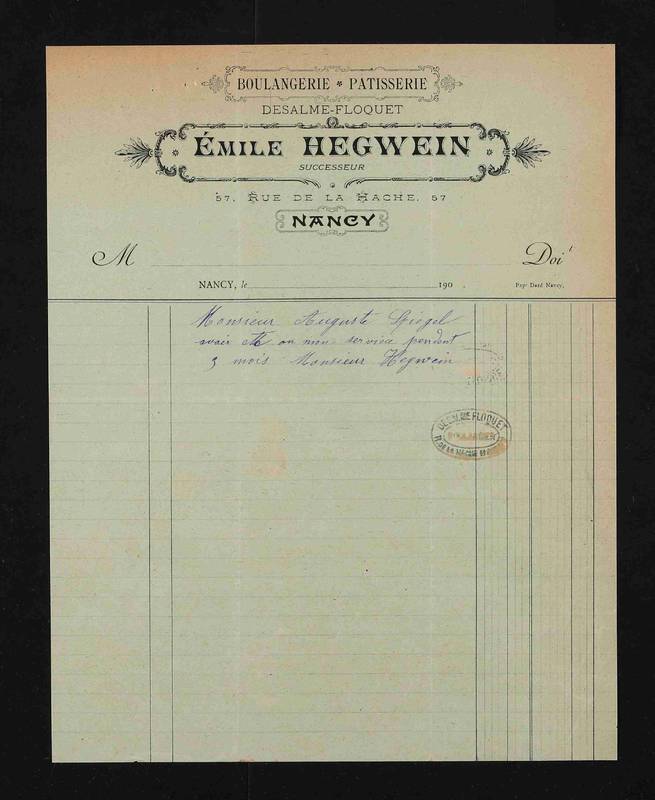 BOULANGERIE * PATISSERIE
DESALME-FLOQUET
ÉMILE HEGWEIN
SUCCESSEUR
57, RUE DE LA HACHE, 57
NANCY
M Doit
NANCY, le 190 .
Pap. Dard Nancy.
Monsieur Auguste Spiegel
avoir été on mon service pendent
3 mois Monsieur Hegwein
FLOQUET
BOULANGER
R. DE LA HACHE